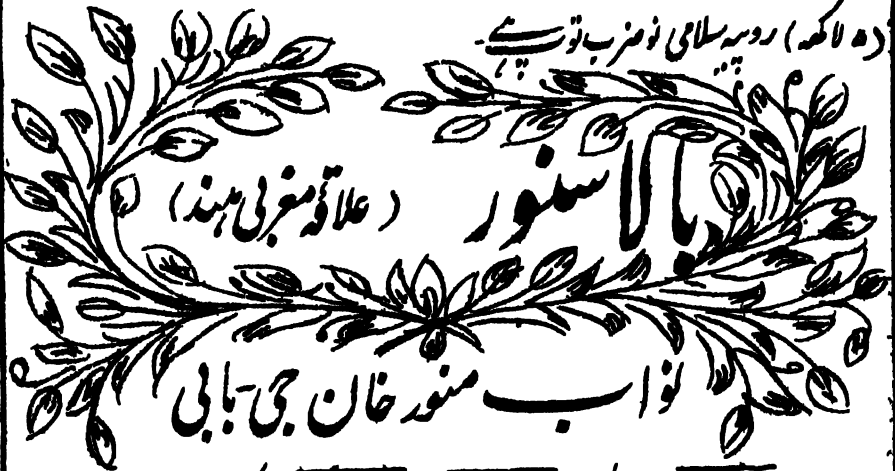 (۵ لاکھ) روپیہ سلامی نو ضرب توپ ہے۔
بالاسنور
(علاقہ مغربی ہند)
نواب منور خان جی۔بابی